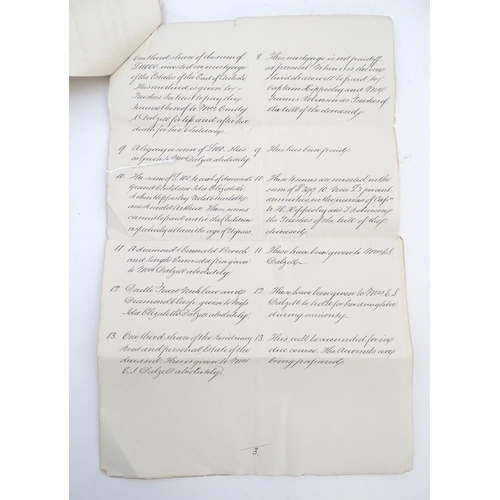 One third share of the sum of
invested on mortgage
of the Estates of the Earl of
This
Trustees
to Mrs
Dalzell for life and after her
death for her children.
8. This mortgage is not paid off
at present. When it is the one
third share will be paid to
Captain Hippisley and Mr
Francis Robinson as Trustees of
the will of the deceased.
9. A legacy of £100. This is
given to Mrs Dalzell absolutely.
9. This has been paid.
10. The sum of £100 to each of deceased's
grandchildren Ida Elizabeth
John Hippisley Violet Charlotte
and Arthur. These sums
cannot be paid until the Children
respectively attain the age of 21 years.
10. These sums are invested in the
sum of 3 percent
annuities in the names of Captn
W. H. Hippisley and F. Robinson
the Trustees of the will of the
deceased.
11. A diamond & emerald Brooch
and single emerald pin given
to Mrs Dalzell absolutely.
11. These have been given to Mrs
Dalzell.
12. Necklace and
Diamond clasp given to Miss
Ida Elizabeth Dalzell absolutely.
12. These have been given to Mrs
Dalzell to hold for her daughter
during minority.
13. One third share of the residuary
real and personal Estate of the
deceased. This is given to Mrs
Dalzell absolutely.
13. This will be accounted for in
due course. The Accounts are
being prepared.
3.